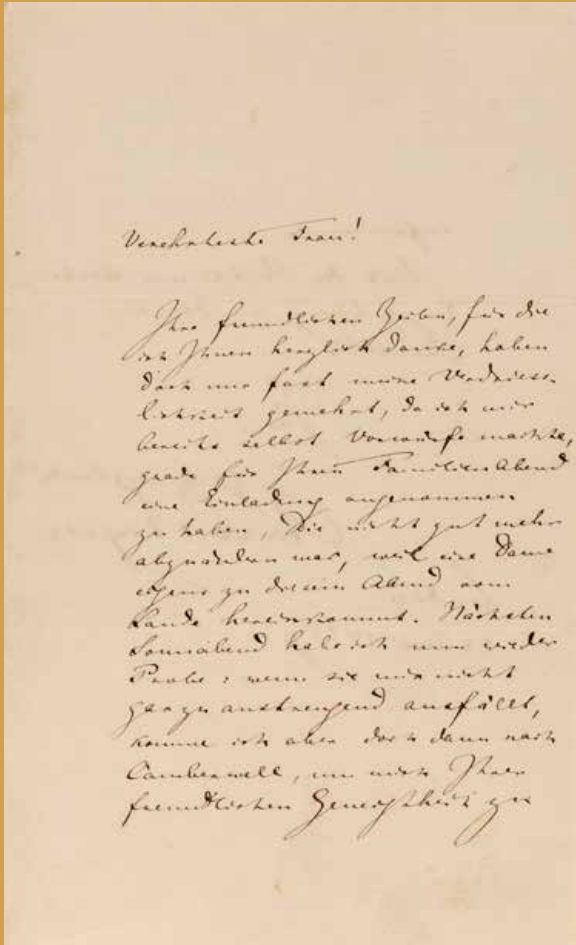 Verehrteste Frau!
Ihre freundlichen Zeilen, für die
ich Ihnen herzlich danke, haben
doch nur fast meine Verdriess-
lichkeit gemehrt, da ich mir
bereits selbst Vorwürfe machte,
grade für Ihren Familien Abend
eine Einladung angenommen
zu haben, die nicht gut mehr
abzuändern war, weil eine Dame
eigens zu diesem Abend vom
Lande hereinkommt. Nächsten
Sonnabend habe ich nun wieder
Probe: wenn sie mir nicht
gar zu anstrengend ausfällt,
komme ich aber doch dann nach
Camberwell, um mich Ihrer
freundlichen Geneigtheit zu